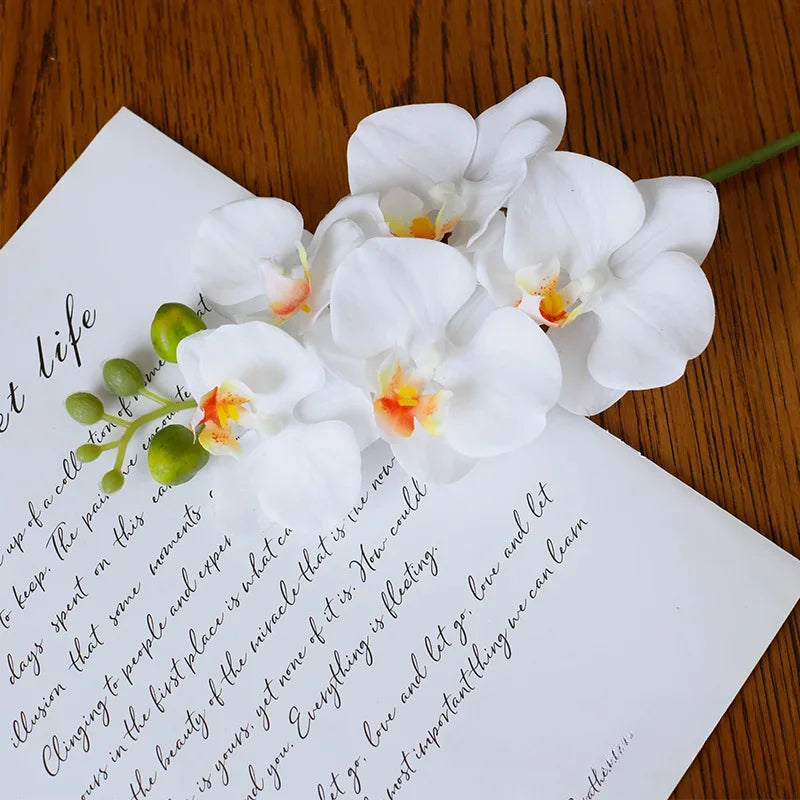 et life
at
up of a collection of mome
to keep. The pain we encounter
days spent on this ea
illusion that some moments
Clinging to people and exper
ours in the first place is what ca
the beauty of the miracle that is the now
is yours, yet none of it is. How could
nd you. Everything is fleeting.
let go, love and let go, love and let
most important thing we can learn